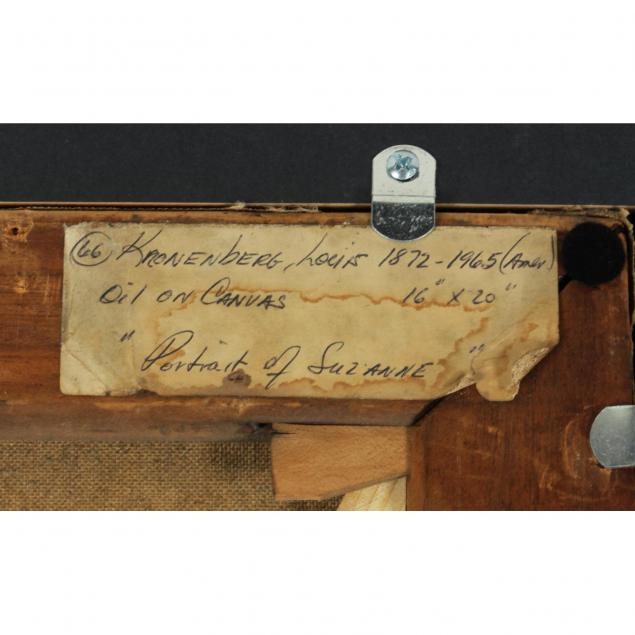 66 KRONENBERG, LOUIS 1872-1965 (Amer.)
OIL ON CANVAS 16" X 20"
" Portrait of SUZANNE "